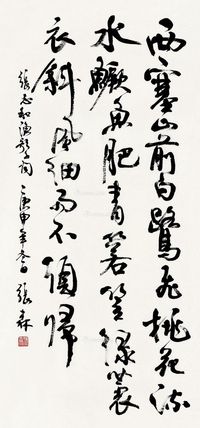 西塞山前白鷺飛桃花流
水鱖魚肥青箬笠綠蓑
衣斜風細雨不須歸
張志和漁歌詞 庚申年冬日 張森